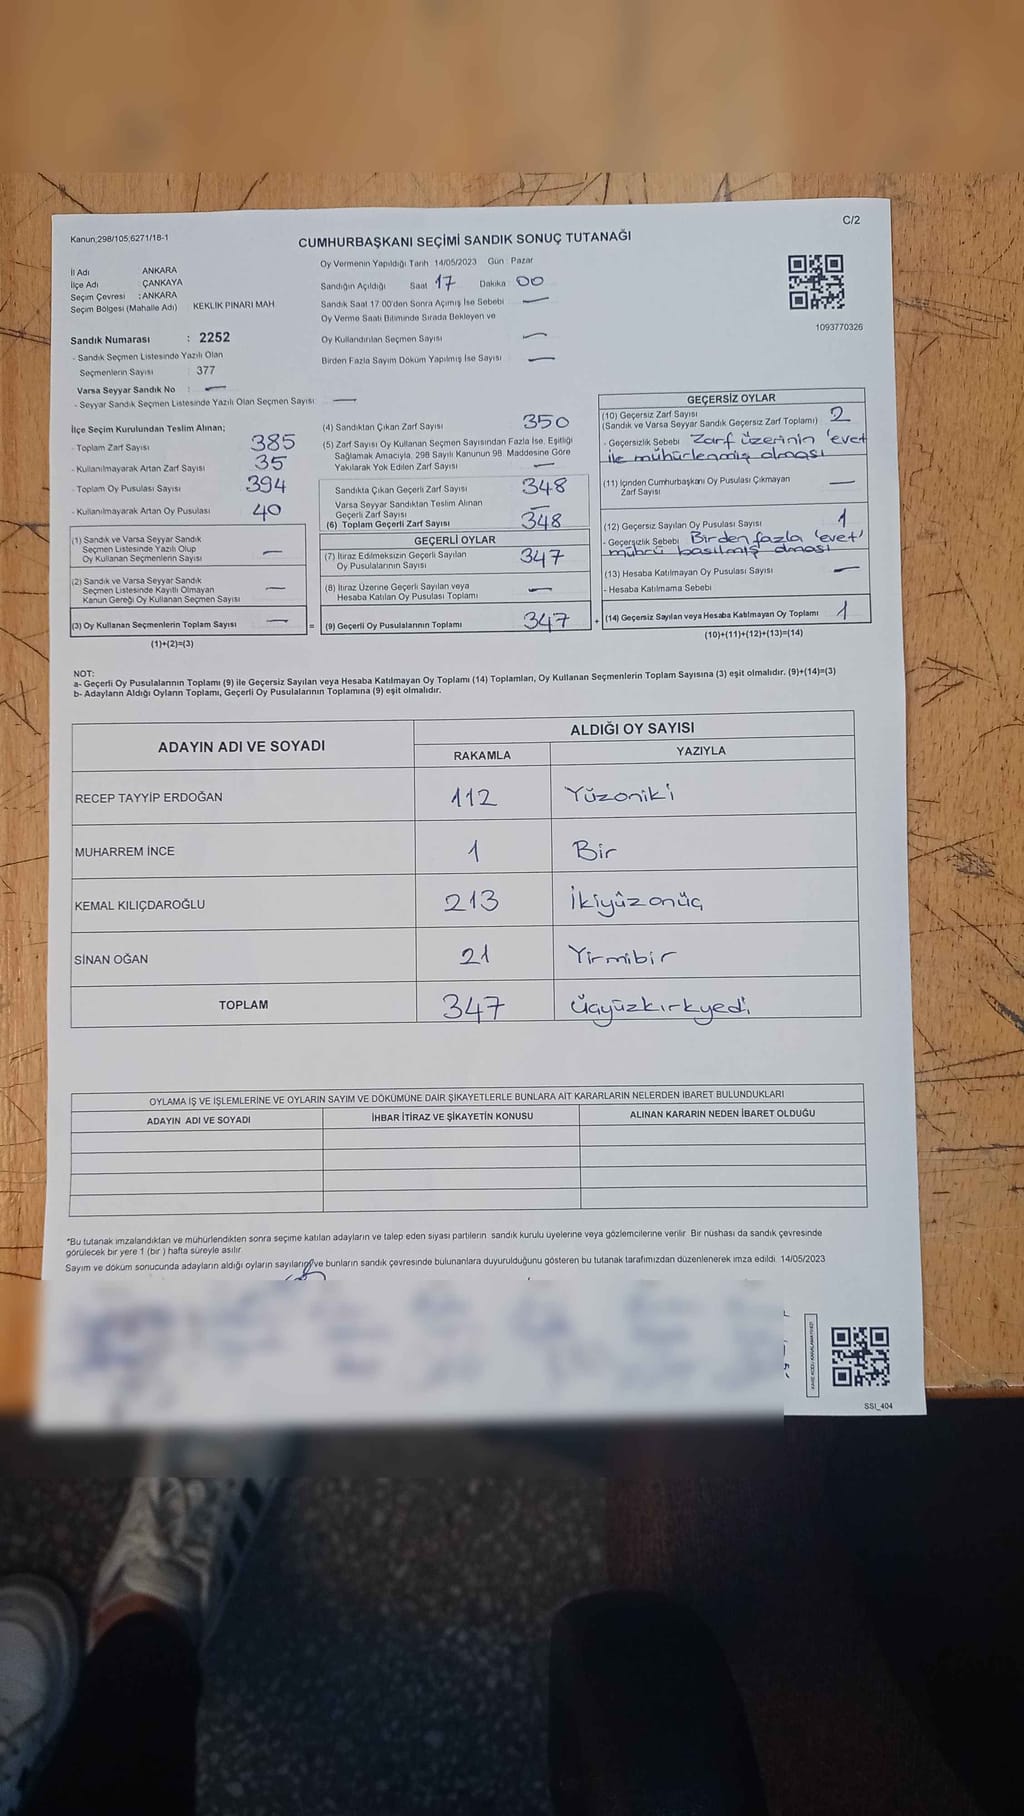 Kanun;298/105;6271/18-1
C/2
CUMHURBAŞKANI SEÇİMİ SANDIK SONUÇ TUTANAĞI
İl Adı ANKARA
İlçe Adı ÇANKAYA
Seçim Çevresi : ANKARA
Seçim Bölgesi (Mahalle Adı) KEKLİK PINARI MAH
Sandık Numarası : 2252
- Sandık Seçmen Listesinde Yazılı Olan
Seçmenlerin Sayısı 377
Varsa Seyyar Sandık No : —
- Seyyar Sandık Seçmen Listesinde Yazılı Olan Seçmen Sayısı: —
Oy Vermenin Yapıldığı Tarih 14/05/2023 Gün : Pazar
Sandığın Açıldığı Saat 17 Dakika 00
Sandık Saat 17:00'den Sonra Açımış İse Sebebi —
Oy Verme Saati Bitiminde Sırada Bekleyen ve
Oy Kullandırılan Seçmen Sayısı —
Birden Fazla Sayım Döküm Yapılmış İse Sayısı —
1093770326
İlçe Seçim Kurulundan Teslim Alınan;
- Toplam Zarf Sayısı 385
- Kullanılmayarak Artan Zarf Sayısı 35
- Toplam Oy Pusulası Sayısı 394
- Kullanılmayarak Artan Oy Pusulası 40
(1) Sandık ve Varsa Seyyar Sandık
Seçmen Listesinde Yazılı Olup
Oy Kullanan Seçmenlerin Sayısı —
(2) Sandık ve Varsa Seyyar Sandık
Seçmen Listesinde Kayıtlı Olmayan
Kanun Gereği Oy Kullanan Seçmen Sayısı —
(3) Oy Kullanan Seçmenlerin Toplam Sayısı —
(1)+(2)=(3)
(4) Sandıktan Çıkan Zarf Sayısı 350
(5) Zarf Sayısı Oy Kullanan Seçmen Sayısından Fazla İse, Eşitliği
Sağlamak Amacıyla, 298 Sayılı Kanunun 98. Maddesine Göre
Yakılarak Yok Edilen Zarf Sayısı —
Sandıkta Çıkan Geçerli Zarf Sayısı 348
Varsa Seyyar Sandıktan Teslim Alınan
Geçerli Zarf Sayısı —
(6) Toplam Geçerli Zarf Sayısı 348
GEÇERLİ OYLAR
(7) İtiraz Edilmeksizin Geçerli Sayılan
Oy Pusulalarının Sayısı 347
(8) İtiraz Üzerine Geçerli Sayılan veya
Hesaba Katılan Oy Pusulası Toplamı —
= (9) Geçerli Oy Pusulalarının Toplamı 347
GEÇERSİZ OYLAR
(10) Geçersiz Zarf Sayısı
(Sandık ve Varsa Seyyar Sandık Geçersiz Zarf Toplamı) 2
- Geçersizlik Sebebi Zarf üzerinin 'evet'
ile mühürlenmiş olması
(11) İçinden Cumhurbaşkanı Oy Pusulası Çıkmayan
Zarf Sayısı —
(12) Geçersiz Sayılan Oy Pusulası Sayısı 1
- Geçerşizlik Sebebi Birden fazla 'evet'
mührü basılmış olması
(13) Hesaba Katılmayan Oy Pusulası Sayısı —
- Hesaba Katılmama Sebebi
+ (14) Geçersiz Sayılan veya Hesaba Katılmayan Oy Toplamı 1
(10)+(11)+(12)+(13)=(14)
NOT:
a- Geçerli Oy Pusulalarının Toplamı (9) ile Geçersiz Sayılan veya Hesaba Katılmayan Oy Toplamı (14) Toplamları, Oy Kullanan Seçmenlerin Toplam Sayısına (3) eşit olmalıdır. (9)+(14)=(3)
b- Adayların Aldığı Oyların Toplamı, Geçerli Oy Pusulalarının Toplamına (9) eşit olmalıdır.
ADAYIN ADI VE SOYADI ALDIĞI OY SAYISI
RAKAMLA YAZIYLA
RECEP TAYYİP ERDOĞAN 112 Yüzoniki
MUHARREM İNCE 1 Bir
KEMAL KILIÇDAROĞLU 213 İkiyüzonüç
SİNAN OĞAN 21 Yirmibir
TOPLAM 347 Üçyüzkırkyedi
OYLAMA İŞ VE İŞLEMLERİNE VE OYLARIN SAYIM VE DÖKÜMÜNE DAİR ŞİKAYETLERLE BUNLARA AİT KARARLARIN NELERDEN İBARET BULUNDUKLARI
ADAYIN ADI VE SOYADI İHBAR İTİRAZ VE ŞİKAYETİN KONUSU ALINAN KARARIN NEDEN İBARET OLDUĞU
*Bu tutanak imzalandıktan ve mühürlendikten sonra seçime katılan adayların ve talep eden siyasi partilerin sandık kurulu üyelerine veya gözlemcilerine verilir. Bir nüshası da sandık çevresinde
görülecek bir yere 1 (bir ) hafta süreyle asılır.
Sayım ve döküm sonucunda adayların aldığı oyların sayılarının ve bunların sandık çevresinde bulunanlara duyurulduğunu gösteren bu tutanak tarafımızdan düzenlenerek imza edildi. 14/05/2023
SSI_404